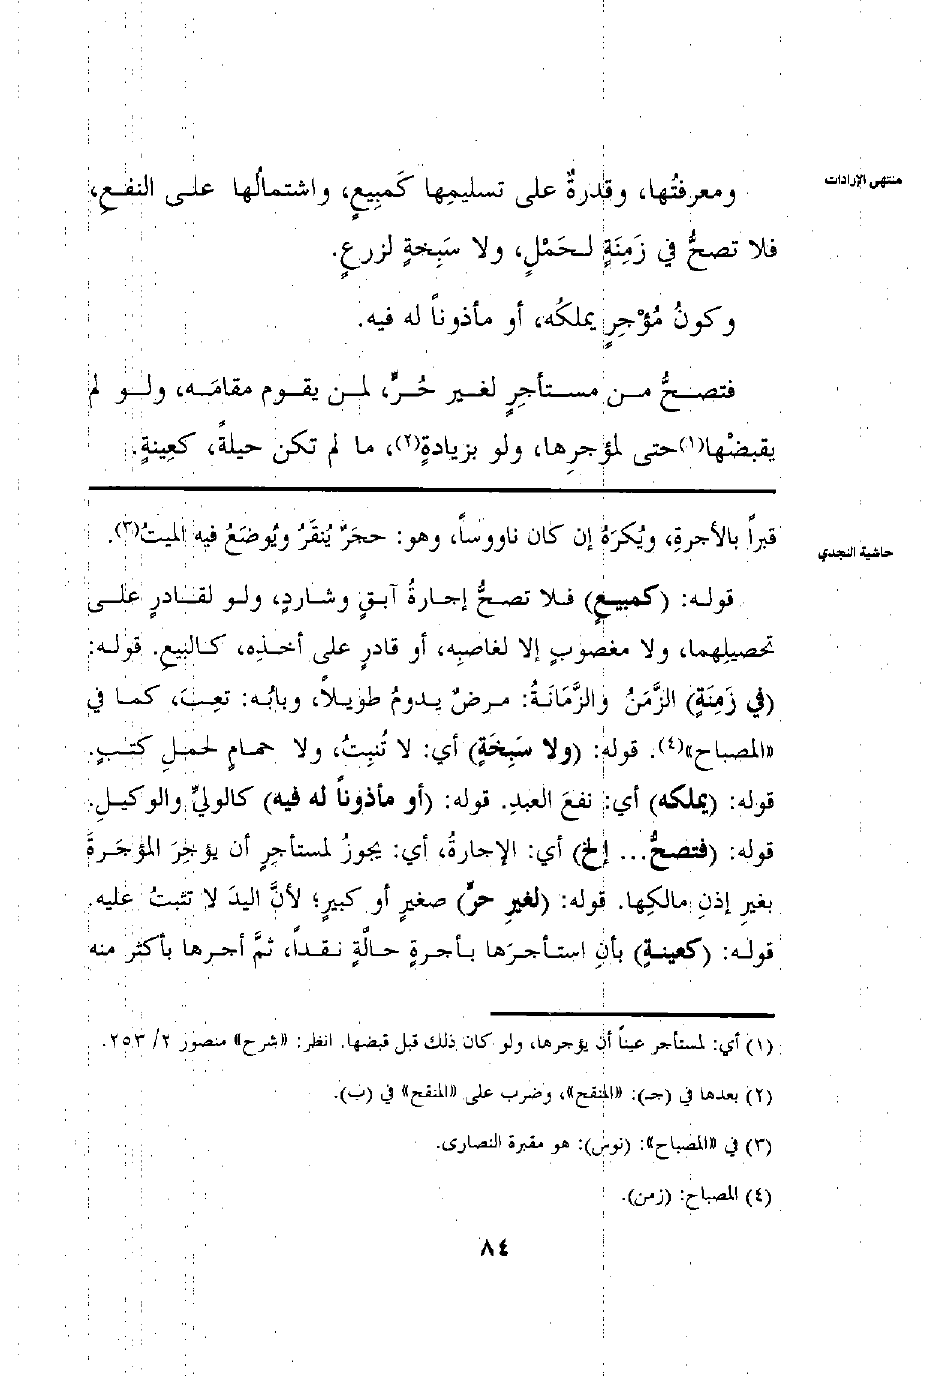 منتهى الإرادات
ومعرفتُها، وقدرةٌ على تسليمِها كَمبِيعٍ، واشتمالُها على النفعِ،
فلا تصحُّ في زَمِنَةٍ لحَمْلٍ، ولا سَبِخةٍ لزرعٍ.
وكونُ مُؤْجِرٍ يملكُه، أو مأذوناً له فيه.
فتصحُّ من مستأجِرٍ لغير حُرٍّ، لمن يقوم مقامَه، ولو لم
يقبضْها(١)حتى لمؤجرِها، ولو بزيادةٍ(٢)، ما لم تكن حيلةً، كعِينةٍ.
حاشية النجدي
قبراً بالأجرةِ، ويُكرَهُ إن كان ناووساً، وهو: حجَرٌ يُنقَرُ ويُوضَعُ فيه الميتُ(٣).
قوله: (كمبيعٍ) فلا تصحُّ إجارةُ آبقٍ وشاردٍ، ولو لقادرٍ على
تحصيلِهما، ولا مغصوبٍ إلا لغاصبِه، أو قادرٍ على أخذِه، كالبيعِ. قوله:
(في زَمِنَةٍ) الزَّمَنُ والزَّمَانَةُ: مرضٌ يدومُ طويلاً، وبابُه: تعِبَ، كما في
«المصباح»(٤). قوله: (ولا سَبِخَةٍ) أي: لا تُنبِتُ، ولا حمامٍ لحملِ كتبٍ.
قوله: (يملكه) أي: نفعَ العبدِ. قوله: (أو مأذوناً له فيه) كالوليِّ والوكيلِ.
قوله: (فتصحُّ... إلخ) أي: الإجارةُ، أي: يجوزُ لمستأجرٍ أن يؤجِرَ المؤجَرةَ
بغيرِ إذنِ مالكِها. قوله: (لغيرِ حرٍّ) صغيرٍ أو كبيرٍ؛ لأنَّ اليدَ لا تثبتُ عليه.
قوله: (كعينةٍ) بأنِ استأجرَها بأجرةٍ حالَّةٍ نقداً، ثمَّ أجرها بأكثر منه
(١) أي: لمستأجر عيناً أن يؤجرها، ولو كان ذلك قبل قبضها. انظر: «شرح» منصور ٢/ ٢٥٣.
(٢) بعدها في (جـ): «المنقح»، وضرب على «المنقح» في (ب).
(٣) في «المصباح»: (نوس): هو مقبرة النصارى.
(٤) المصباح: (زمن).
٨٤